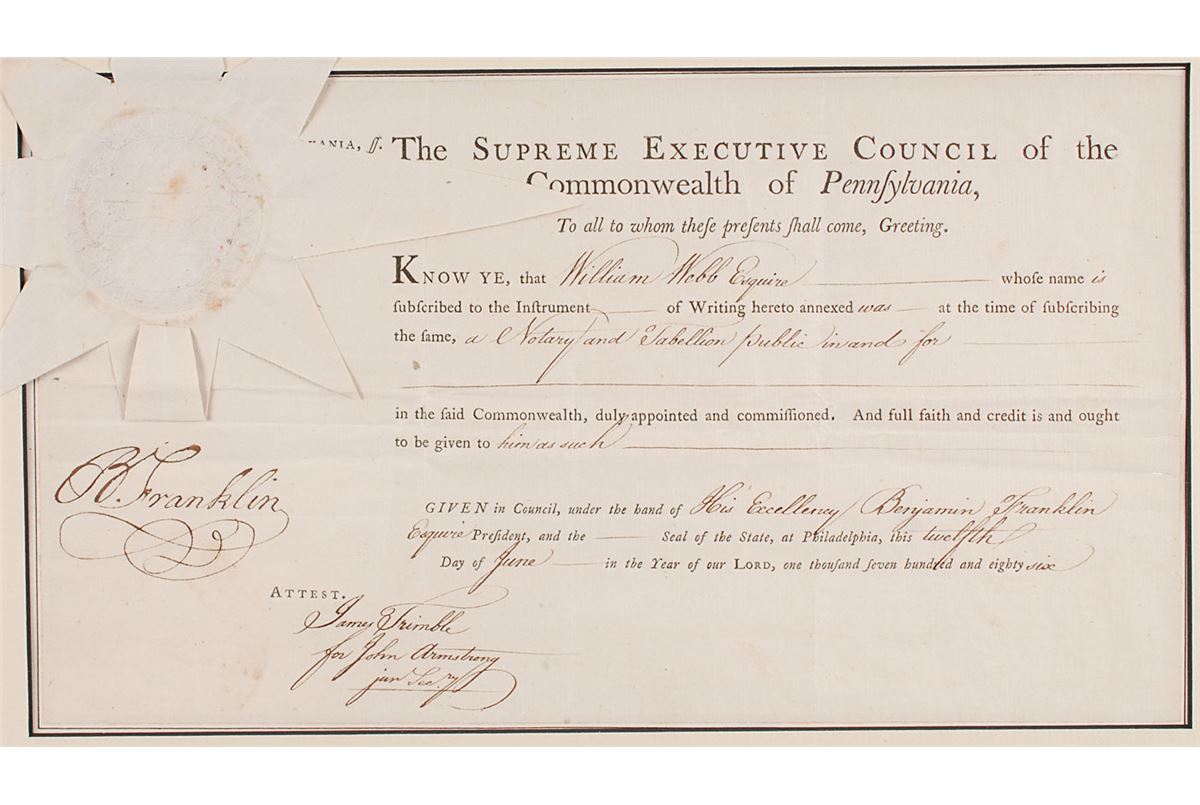 VANIA, ſſ. The SUPREME EXECUTIVE COUNCIL of the
Commonwealth of Pennſylvania,
To all to whom theſe preſents ſhall come, Greeting.
KNOW YE, that William Webb Esquire whose name is
ſubſcribed to the Inſtrument of Writing hereto annexed was at the time of ſubſcribing
the ſame, a Notary and Tabellion public in and for
in the ſaid Commonwealth, duly appointed and commiſſioned. And full faith and credit is and ought
to be given to him as such
B. Franklin
GIVEN in Council, under the hand of His Excellency Benjamin Franklin
Esquire Preſident, and the Seal of the State, at Philadelphia, this twelfth
Day of June in the Year of our LORD, one thouſand ſeven hundred and eighty six
ATTEST.
James Trimble
for John Armstrong
junr Secry